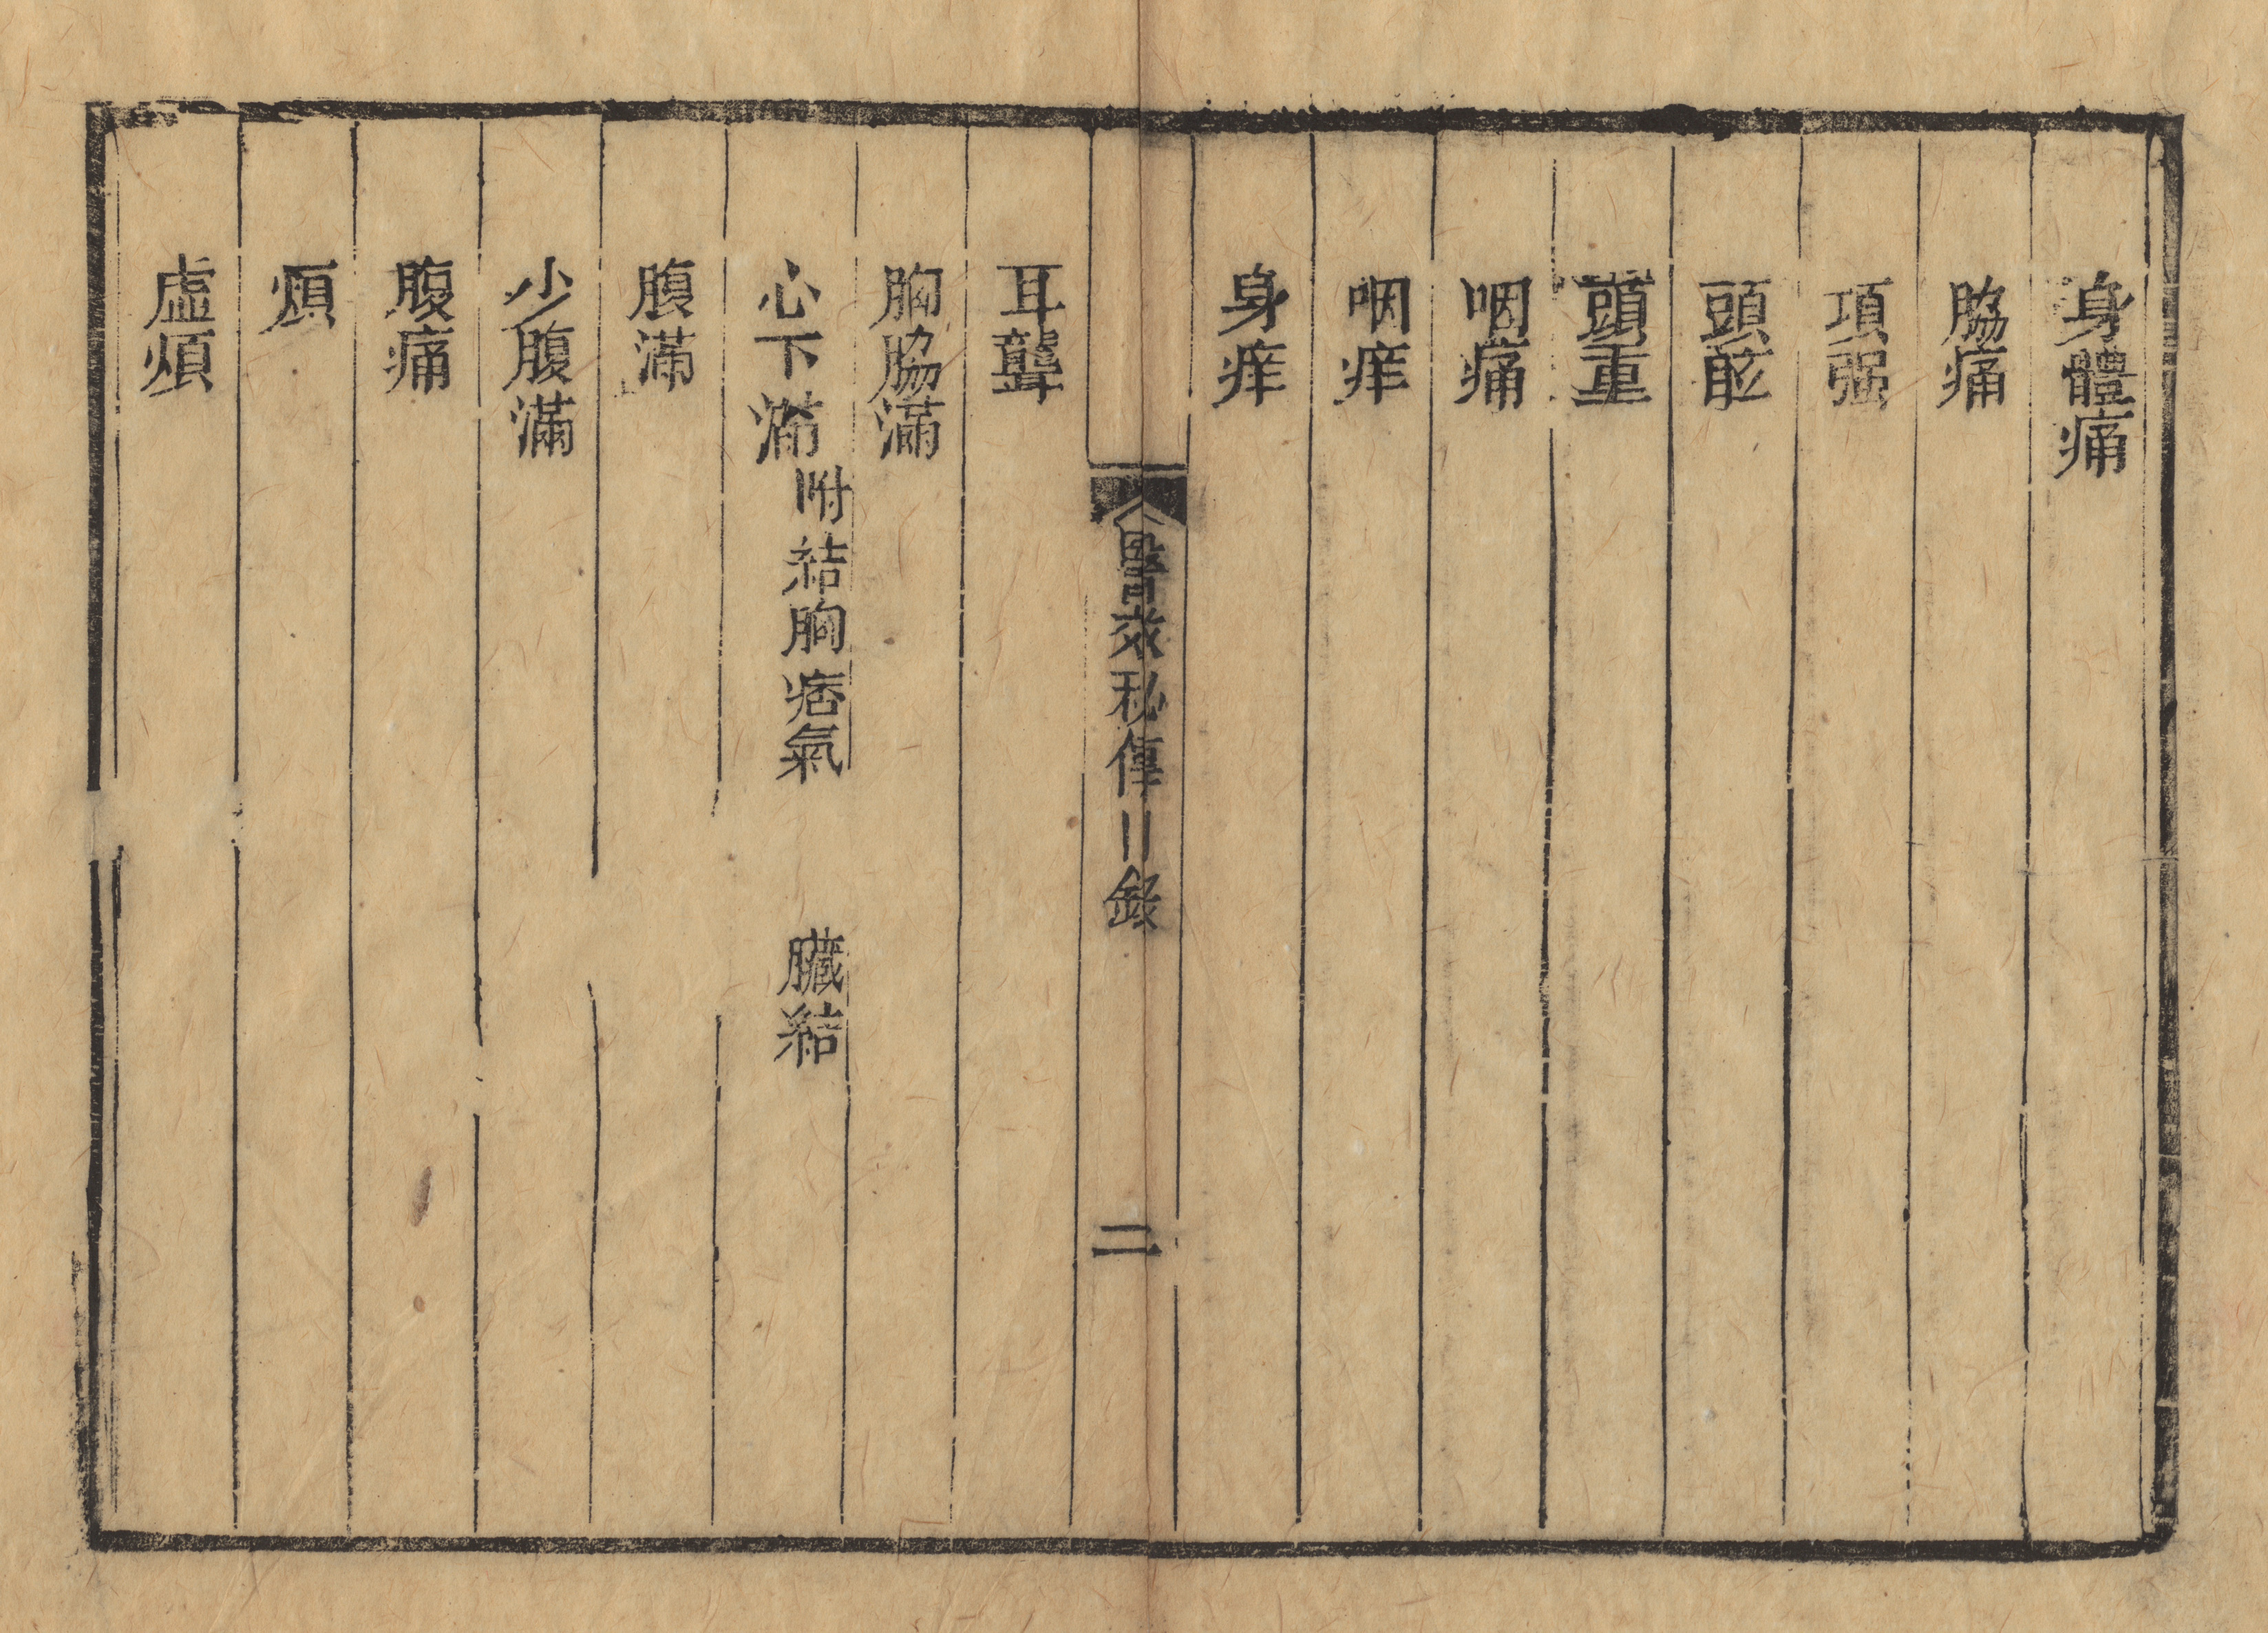 身體痛
脇痛
項强
頭眩
頭重
咽痛
咽痒
身痒
醫效秘傳 目錄 二
耳聾
胸脇滿
心下滿 附結胸痞氣 臟結
腹滿
少腹滿
腹痛
煩
虛煩